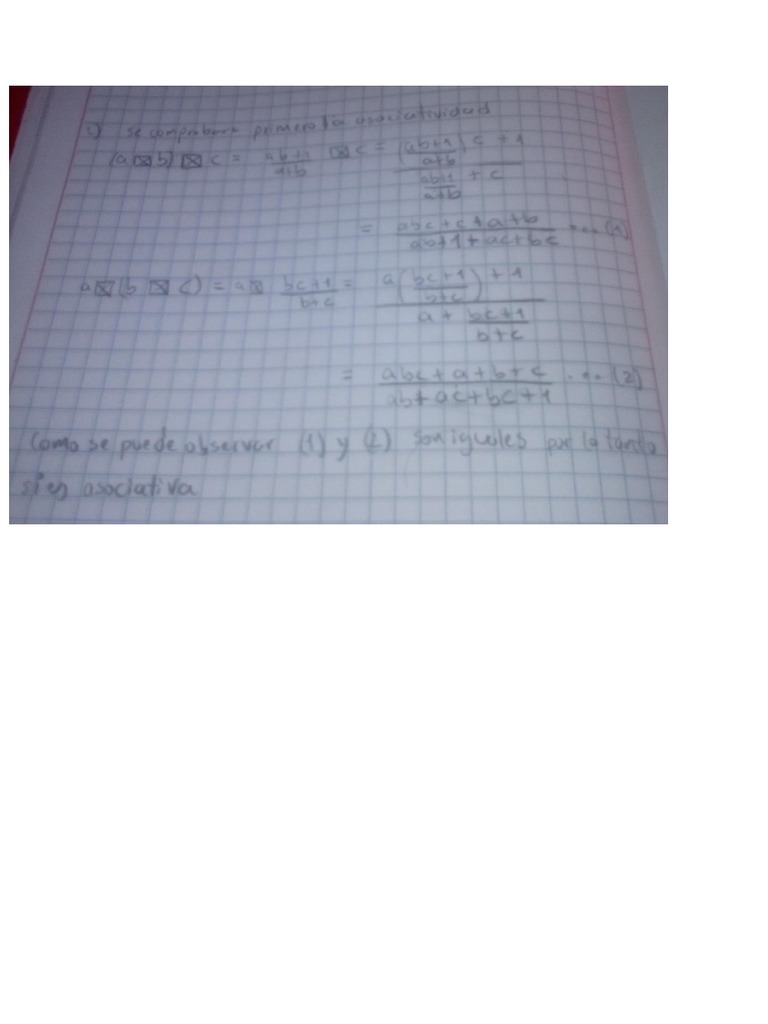 i) se comprobara primero la asociatividad
(a ⊠ b) ⊠ c = \frac{ab+1}{a+b} ⊠ c = \frac{(\frac{ab+1}{a+b})c + 1}{\frac{ab+1}{a+b} + c}
= \frac{abc+c+a+b}{ab+1+ac+bc} ... (1)
a ⊠ (b ⊠ c) = a ⊠ \frac{bc+1}{b+c} = \frac{a(\frac{bc+1}{b+c}) + 1}{a + \frac{bc+1}{b+c}}
= \frac{abc+a+b+c}{ab+ac+bc+1} ... (2)
Como se puede observar (1) y (2) son iguales por lo tanto
si es asociativa